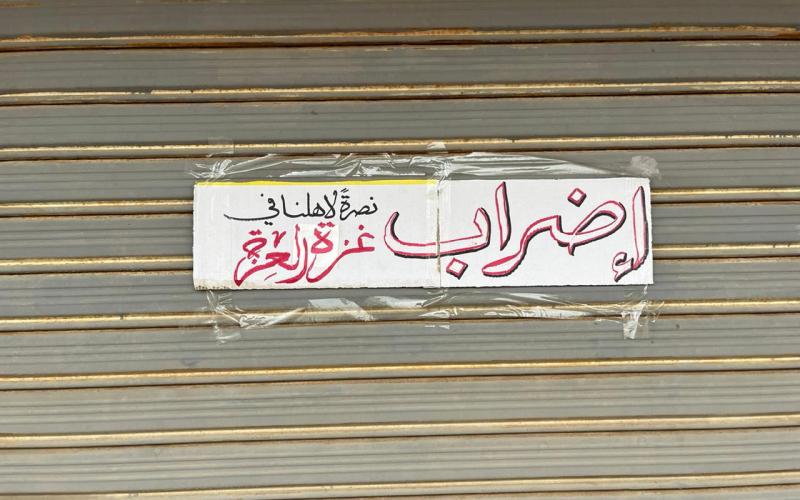 إضراب
نصرةً لاهلنا في
غزة العزة